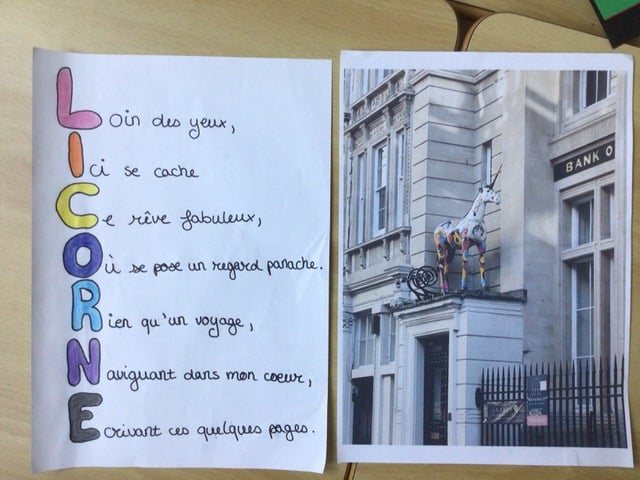 Loin des yeux,
Ici se cache
Ce rêve fabuleux,
Où se pose un regard panache.
Rien qu'un voyage,
Naviguant dans mon coeur,
Ecrivant ces quelques pages.
BANK O